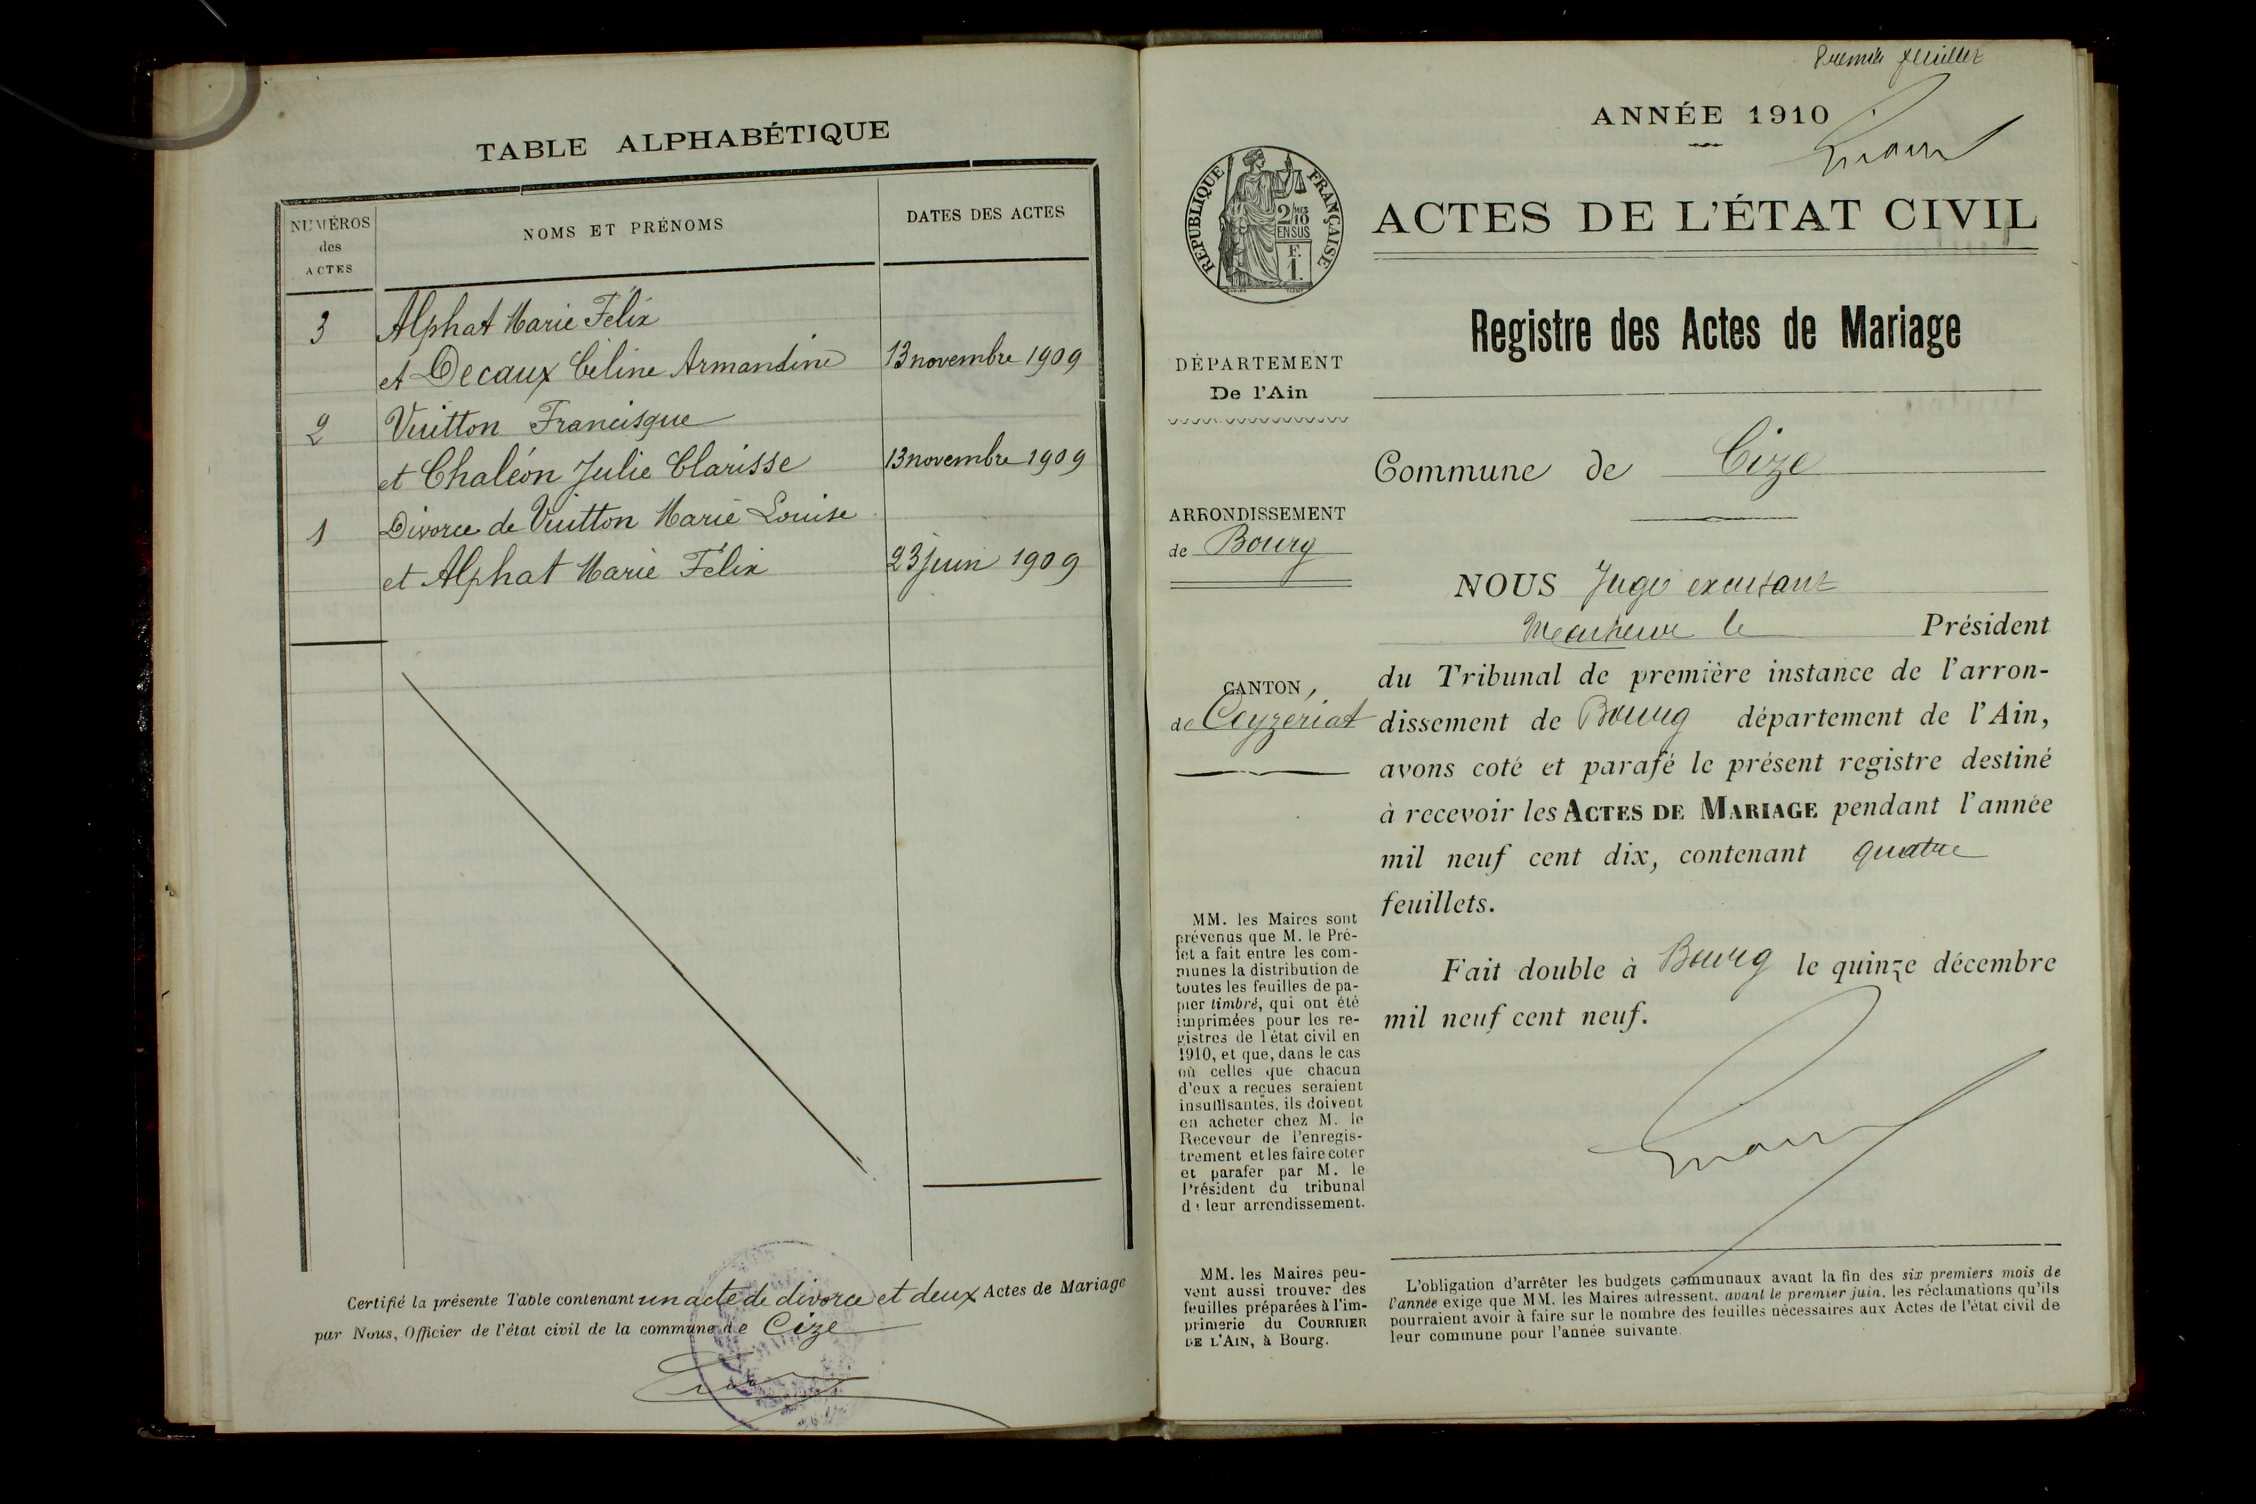 TABLE ALPHABÉTIQUE
NUMÉROS
des
ACTES
NOMS ET PRÉNOMS
DATES DES ACTES
3 Alphat Marie Félix
et Decaux Céline Armandine 13 novembre 1909
2 Vuitton Francisque
et Chaléon Julie Clarisse 13 novembre 1909
1 Divorce de Vuitton Marie Louise
et Alphat Marie Félix 23 juin 1909
Certifié la présente Table contenant un acte de divorce et deux Actes de Mariage
par Nous, Officier de l'état civil de la commune de Cize
Premier feuillet
ANNÉE 1910
RÉPUBLIQUE FRANÇAISE
2/10
EN SUS
F.
1.
ACTES DE L'ÉTAT CIVIL
Registre des Actes de Mariage
DÉPARTEMENT
De l'Ain
Commune de Cize
ARRONDISSEMENT
de Bourg
CANTON
de Ceyzériat
NOUS Juge
le Président
du Tribunal de première instance de l'arron-
dissement de Bourg département de l'Ain,
avons coté et parafé le présent registre destiné
à recevoir les ACTES DE MARIAGE pendant l'année
mil neuf cent dix, contenant quatre
feuillets.
Fait double à Bourg le quinze décembre
mil neuf cent neuf.
MM. les Maires sont
prévenus que M. le Pré-
fet a fait entre les com-
munes la distribution de
toutes les feuilles de pa-
pier timbré, qui ont été
imprimées pour les re-
gistres de l'état civil en
1910, et que, dans le cas
où celles que chacun
d'eux a reçues seraient
insuffisantes, ils doivent
en acheter chez M. le
Receveur de l'enregis-
trement et les faire coter
et parafer par M. le
Président du tribunal
de leur arrondissement.
MM. les Maires peu-
vent aussi trouver des
feuilles préparées à l'im-
primerie du COURRIER
DE L'AIN, à Bourg.
L'obligation d'arrêter les budgets communaux avant la fin des six premiers mois de
l'année exige que MM. les Maires adressent, avant le premier juin, les réclamations qu'ils
pourraient avoir à faire sur le nombre des feuilles nécessaires aux Actes de l'état civil de
leur commune pour l'année suivante.